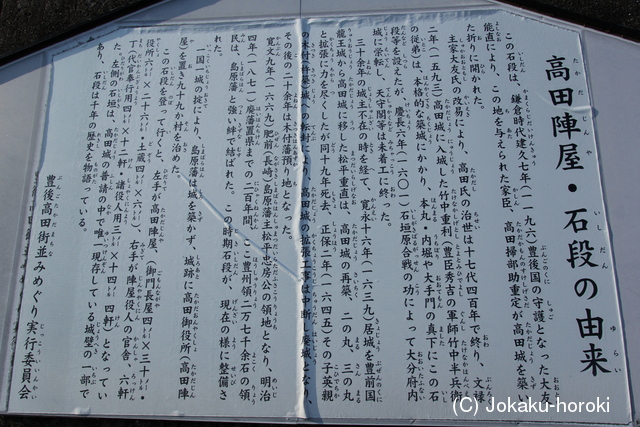 高田陣屋・石段の由来
この石段は、鎌倉時代建久七年(一一九六)豊後国の守護となった大友
能直により、この地を与えられた家臣、高田掃部助重定が高田城を築い
た折りに開かれた。
主家大友氏の改易により、高田氏の治世は十七代四百年で終り、文禄
二年(一五九三)高田城に入城した竹中重利(豊臣秀吉の軍師竹中半兵衛
の従弟)は、本格的な築城にかかり、本丸・内堀や大手門の真下にこの石
段等を設えたが、慶長六年(一六〇一)石垣原合戦の功によって大分府内
城に栄転し、天守閣等は未着工に終った。
三十余年の城主不在の時を経て、寛永十六年(一六三九)居城を豊前国
龍王城から高田城に移した松平重直は、高田城の再築、二の丸、三の丸
と拡張に力を尽くしたが同十九年死去、正保二年(一六四五)その子英親
の木付(杵築)城への転封により、高田城の拡張工事は中断、廃城となり、
その後の二十余年は木付藩預り地となった。
寛文九年(一六六九)肥前長崎、島原藩主松平忠房公の領地となり、明治
四年(一八七一)廃藩置県までの二百年間、ここ豊州領二万七千余石の領
民は、島原藩と強い絆で結ばれた。この時期石段が、現在の様に整備さ
れた。
一国一城の掟により、島原藩は城を築かず、城跡に高田御役所(高田陣
屋)を置き九十九か村を治めた。
この石段を登って行くと、左手が高田陣屋(御門長屋四㍍×三十㍍・
役所六㍍×二十六㍍・土蔵四㍍×六㍍)、右手が陣屋役人の官舎、六軒
丁(代官奉行用四㍍×十二軒 諸役人用三㍍×十四㍍四軒)となってい
た。左側の石垣は、高田城の普請の中で唯一現存している城壁の一部で
あり、石段は千年の歴史を物語っている。
豊後高田街並みめぐり実行委員会
(C) Jokaku-horoki